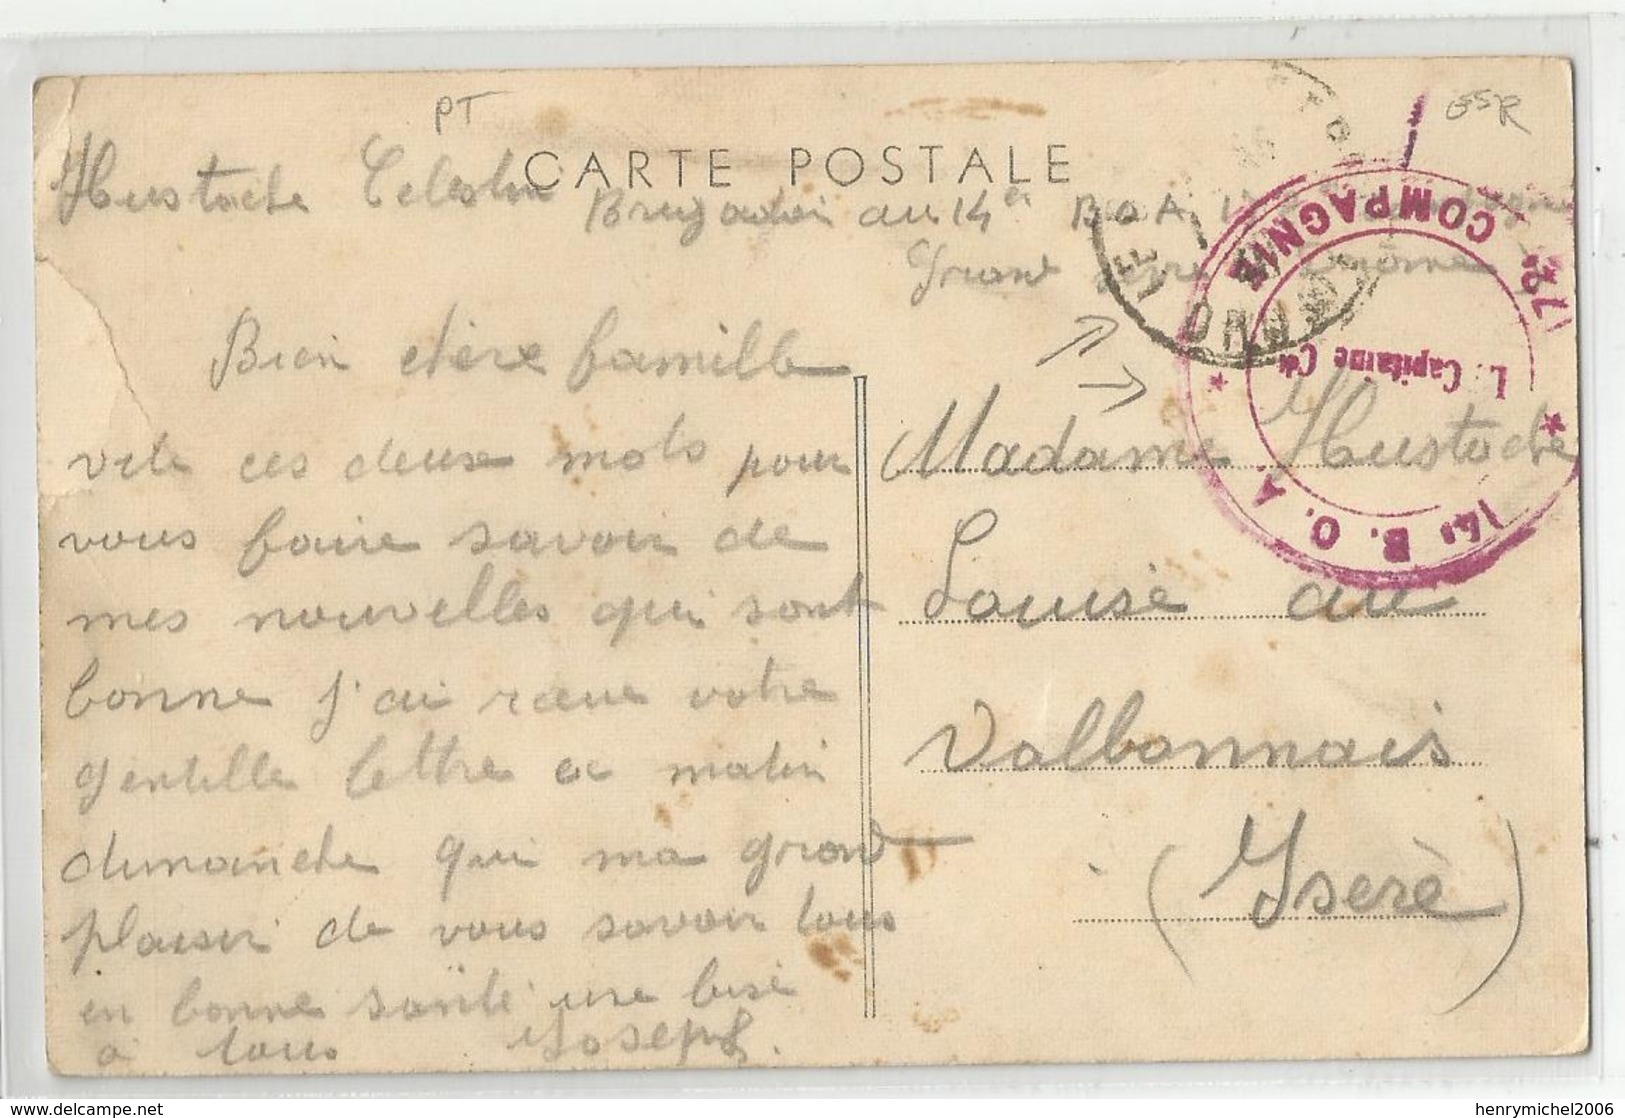 PT
GSR
CARTE POSTALE
Hustache Celestin
Brigadier au 14er B O A
Grand Serre Drôme
Bien chère famille
vite ces deux mots pour
vous faire savoir de
mes nouvelles qui sont
bonne j'ai recue votre
gentille lettre ce matin
dimanche qui ma grand
plaisir de vous savoir tous
en bonne santé une bise
à tous Joseph.
Madame Hustache
Louise au
Valbonnais
(Isère)
172e COMPAGNIE
Le Capitaine Ct
14e B. O. A.
DROME
henrymichel2006